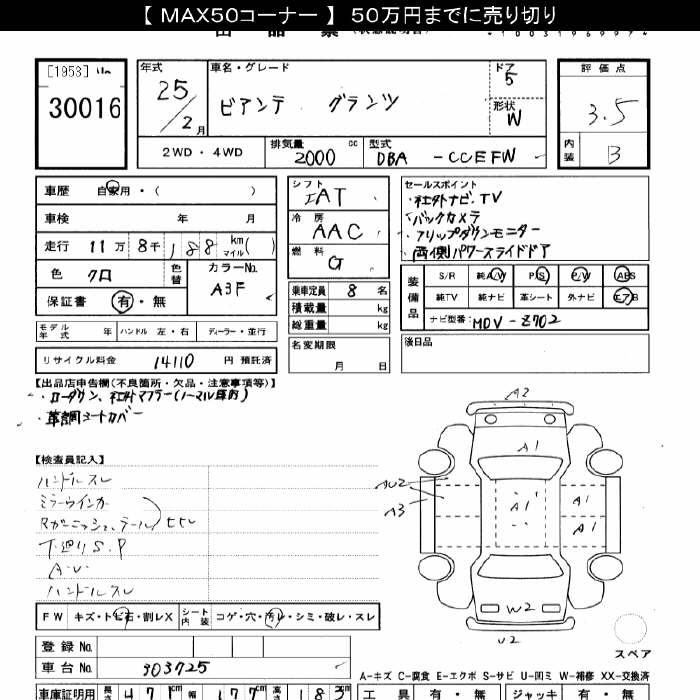 【 MAX50コーナー 】 50万円までに売り切り
[1953]
30016
年式
25/2月
車名・グレード
ビアンテ グランツ
ドア
5
形状
W
評価点
3.5
内装
B
2WD・4WD
排気量
2000cc
型式
DBA -CCEFW
車歴 自家用・( )
車検 年 月
走行 11万8千188km マイル( )
色 クロ
色替
カラーNo.
A3F
保証書 有・無
モデル年式 年 ハンドル 左・右 ディーラー・並行
リサイクル料金 14110 円 預託済
シフト
IAT
冷房
AAC
燃料
G
乗車定員 8 名
積載量 kg
総重量 kg
名変期限
月 日
セールスポイント
・社外ナビ、TV
・バックカメラ
・フリップダウンモニター
・両側パワースライドドア
装備品
S/R 純A/W P/S P/W ABS
純TV 純ナビ 革シート 外ナビ エアB
ナビ型番: MDV-Z702
後日品
【出品店申告欄(不良箇所・欠品・注意事項等)】
・ローダウン、社外マフラー(ノーマル無)
・革調シートカバー
【検査員記入】
ハンドルスレ
ミラーウインカー
Rガーニッシュ、テール
下廻りS.P
A・U
ハンドルスレ
FW キズ・トビ石・割レX シート内装 コゲ・穴・汚レ・シミ・破レ・スレ
登録No.
車台No. 303725
車庫証明用 長さ 471cm 幅 177cm 高さ 183cm
A2
A1
AU2
A3
A1
A1
A1
W2
U2
スペア
A-キズ C-腐食 E-エクボ S-サビ U-凹ミ W-補修 XX-交換済
工具 有・無 ジャッキ 有・無